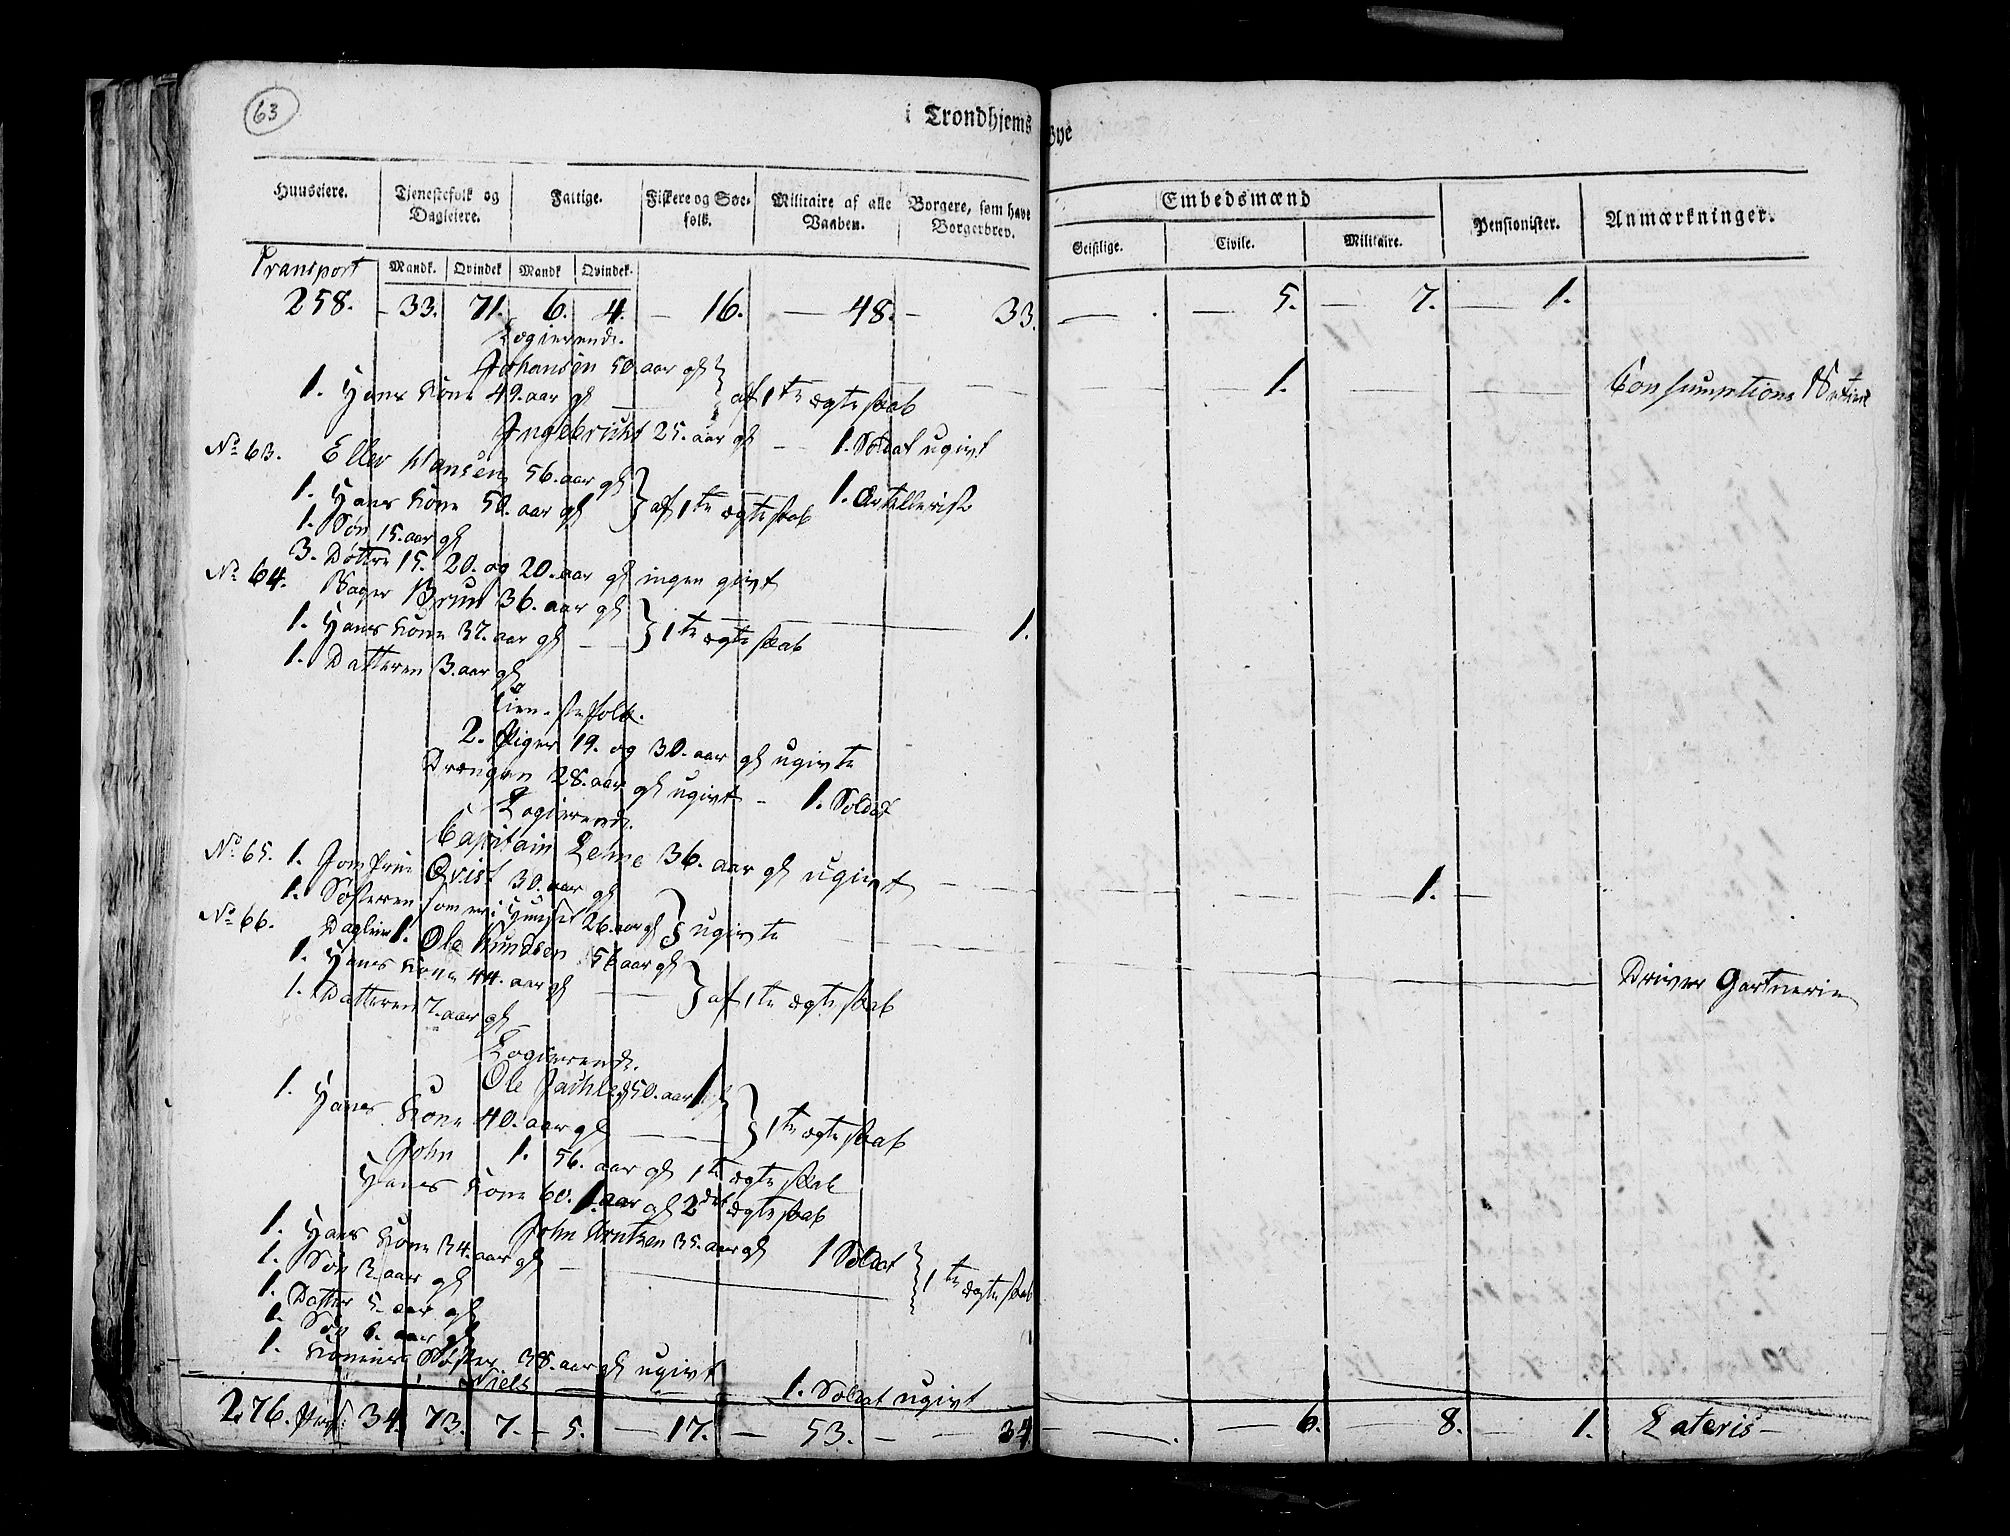 63
i Trondhjems Bye
Huuseiere. Tjenestefolk og Dagleiere. Fattige. Fiskere og Søe-folk. Militaire af alle Vaaben. Borgere, som have Borgerbrev. Embedsmænd Pensionister. Anmærkninger.
Geistlige. Civile. Militaire.
Mandk. Qvindek Mandk Qvindek.
Transport
258. 33. 71. 6. 4. 16. 48. 33. 5. 7. 1.
Logierende.
Johansen 50. aar gl
1. Hans Kone 49. aar gl af 1te ægteskab 1. Consumptions
Ingebricht 25. aar gl 1. Soldat ugivt
No 63. Eller Hansen 56. aar gl 1. Artellerist
1. Hans Kone 50. aar gl af 1te ægteskab
1. Søn 15. aar gl
3. Døttre 15. 20. og 20. aar gl ingen givt
No 64. Bager Bruun 36. aar gl 1.
1. Hans Kone 37. aar gl 1te ægteskab
1. Datteren 3. aar gl
Tienestefolk.
2. Piger 19. og 30. aar gl ugivte
Drængen 28. aar gl ugivt 1. Soldat
Logierende.
Capitain Leme 36. aar gl ugivt 1.
No 65. 1. Jomfrue Qvist 30. aar gl
1. Søsteren som er i Huuset 26. aar gl ugivte
No 66. Dagleier 1. Ole Knudsen 56 aar gl Driver Gartnerie
1. Hans Kone 44. aar gl af 1te ægteskab
1. Datteren 7. aar gl
Logierende.
Ole 50. aar 1.
1. Hans Kone 40. aar gl 1te ægteskab
John 1. 56. aar gl 1te ægteskab
Hans Kone 60. 1. aar gl 2det ægteskab
John Arntzen 35. aar gl 1 Soldat
1. Hans Kone 34. aar gl 1te ægteskab
1. Søn 3. aar gl
1. Datter 5. aar gl
1. Søn 6. aar gl
1. Konens Søster 38. aar gl ugivt
Niels 1. Soldat ugivt
276. 34. 73. 7. 5. 17. 53. 34 6. 8. 1. Lateris